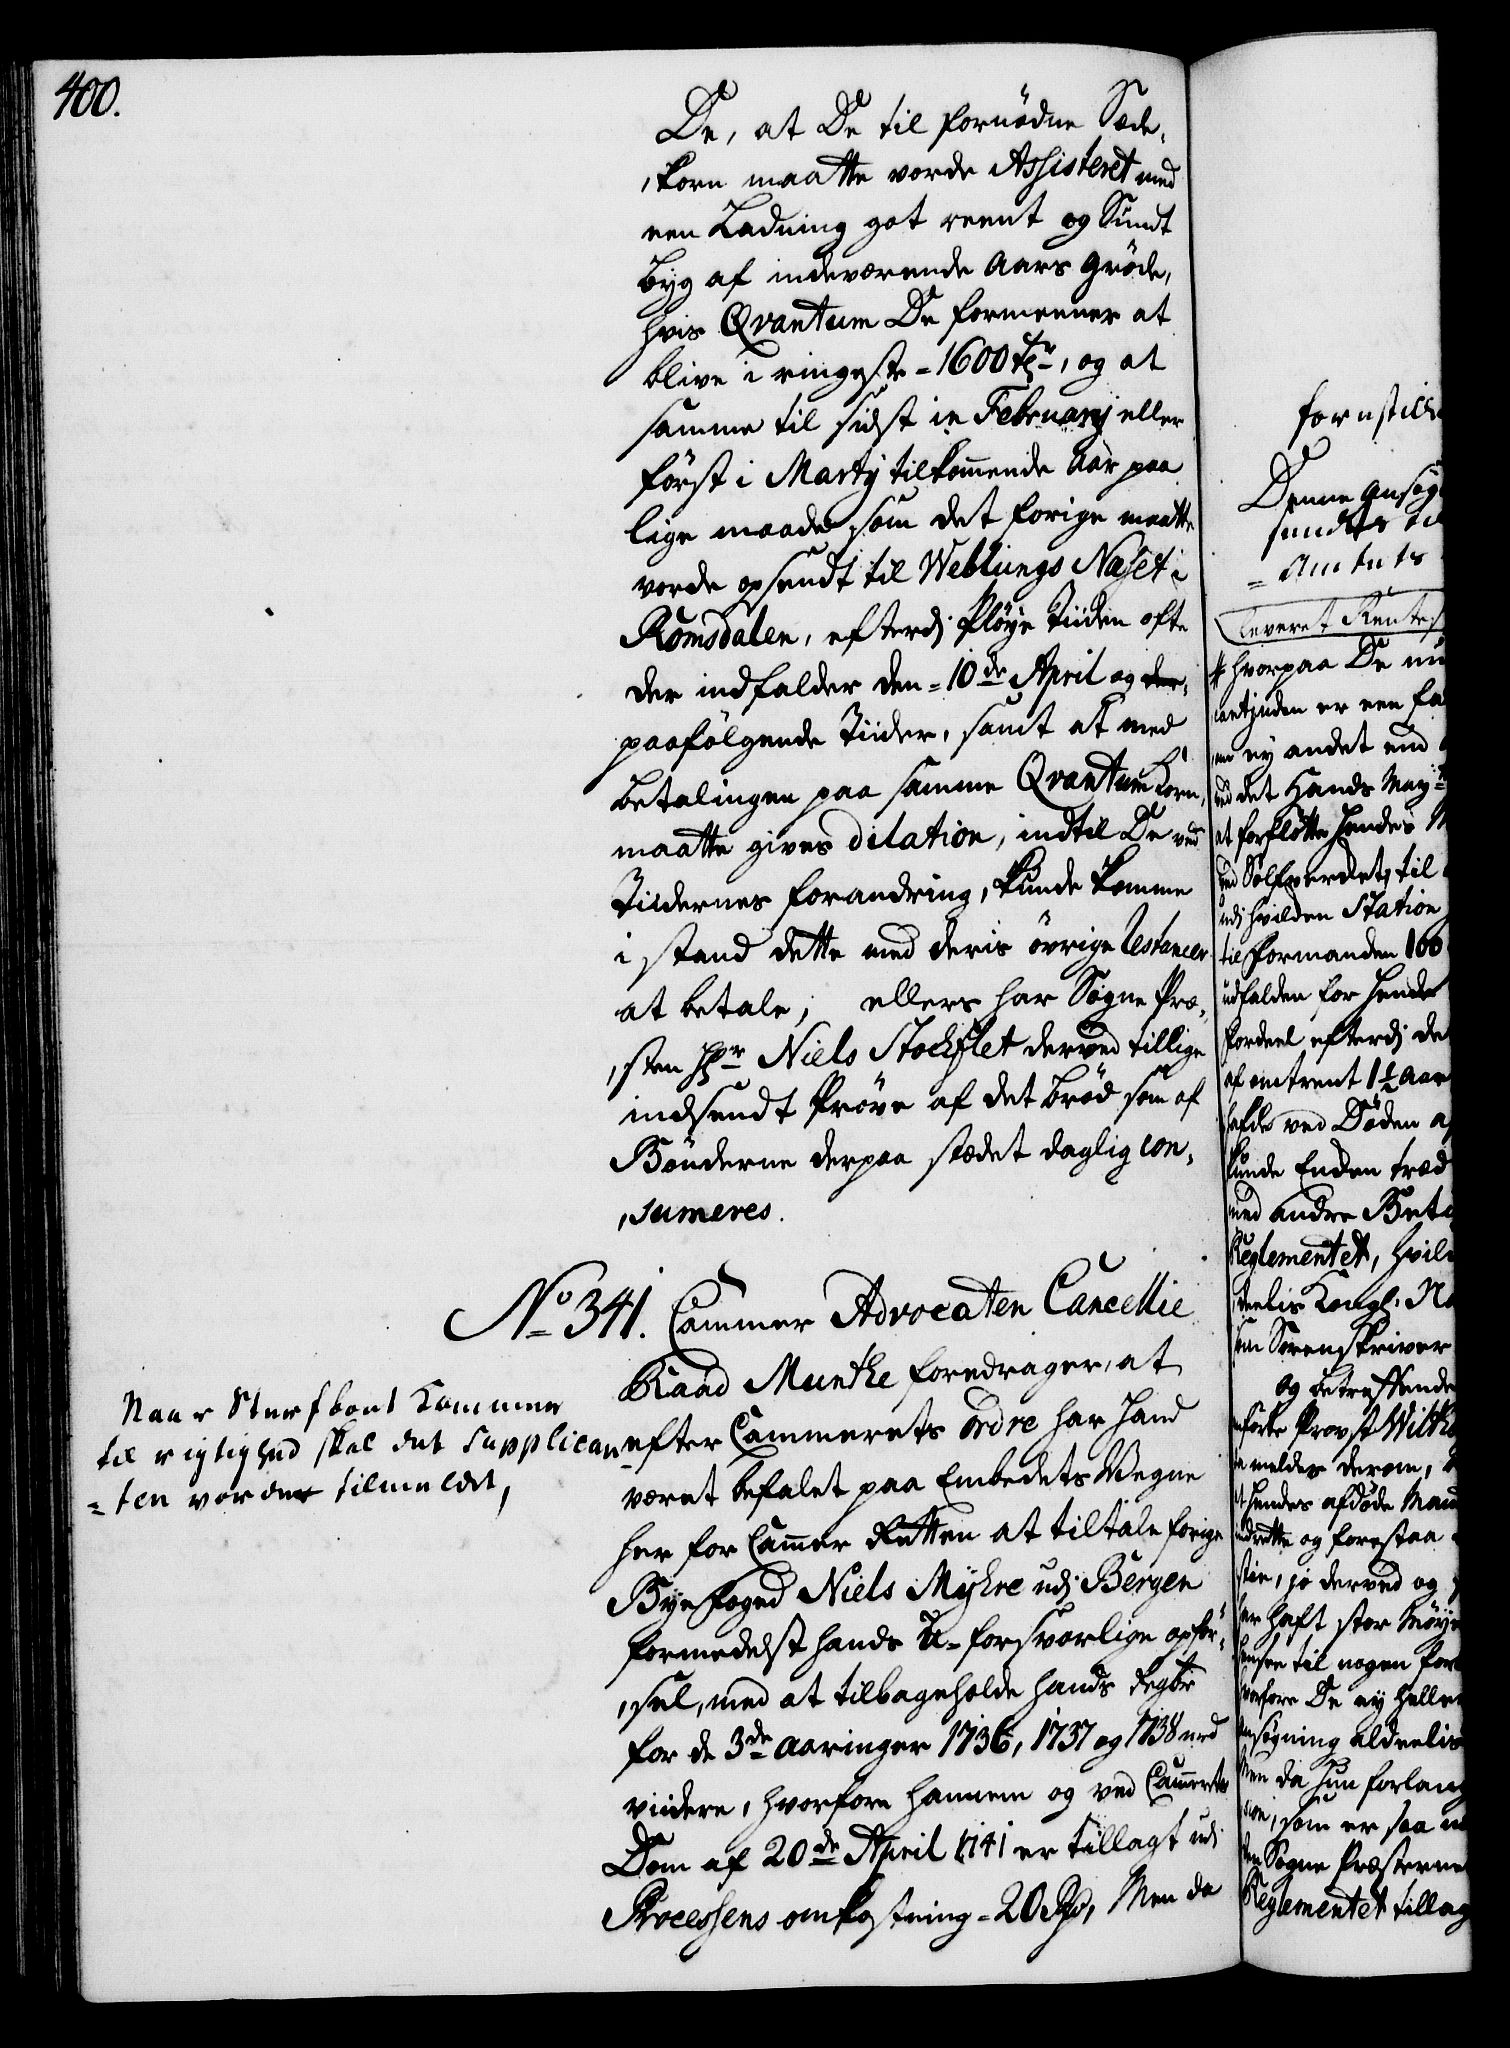 400.
De, at De til fornødne Sæde,
,korn maatte vorde Assisteret med
een Ladning got reent og Sundt
Byg af indeværende Aars Grøde,
hvis Qvantum De formeener at
blive i ringeste - 1600 tr, og at
samme til sidst in February eller
først i Marty tilkommende Aar paa
lige maade som det forige maatte
vorde opsendt til Weblungs Næset i
Romsdalen, efterdj Pløye Tiiden ofte
der indfalder den - 10de April og der,
paafølgende Tiider, samt at med
betalingen paa samme Qvantum Korn,
maatte gives dilation, indtil De ved
Tiidernes forandring, kunde komme
i stand dette med deris øvrige Restancer
at betale, ellers har Sogne Præ,
,sten Hr Niels Stockflet derved tillige
indsendt Prøve af det brød som af
Bønderne derpaa stædet daglig con,
,sumeres.
No 341. Cammer Advocaten Cancellie
Raad Munthe foredrager, at
efter Cammerets ordre har hand
været befalet paa Embedets Wegne
her for Cammer Retten at tiltale forige
Byefoged Niels Myhre udj Bergen
formedelst hands U-forsvarlige opför,
,sel, med at tilbageholde hands Regbr
for de 3de Aaringer 1736, 1737 og 1738 med
viidere, hvorfore hannem og ved Cammerets
Dom af 20de April 1741 er tillagt udi
Processens omkostning - 20 Rdr, Men da
Naar Sterfboet Kommer
til rigtighed skal det Supplican
= ten vorder tilmeldet,
forestill
Denne Ansøg
sendes til
= Amtets
leveret Rentes
hvorpaa De nu
ey andet end
det Hands May
at forfløtte Hendes
ved Sølfverdet, til
udj hvilken Station
til Formanden 100
udfalden for Hende
fordeel efterdj de
af omtrent 1 1/2 Aar
ved Døden
kunde Enken træd
med andre Bete
Reglementet, hvil
deelis Kongl. No
som Sorenskriver
og betreffende
Provst Wilth
melder derom,
Hendes afdøde Man
og forestaa
stie, jo derved og
har haft stor Møye
til nogen for
hvorfore De ey heller
ansøgning aldeelis
Men da hun forlang
som er saa
Sogne Præsterne
Reglementet tillag